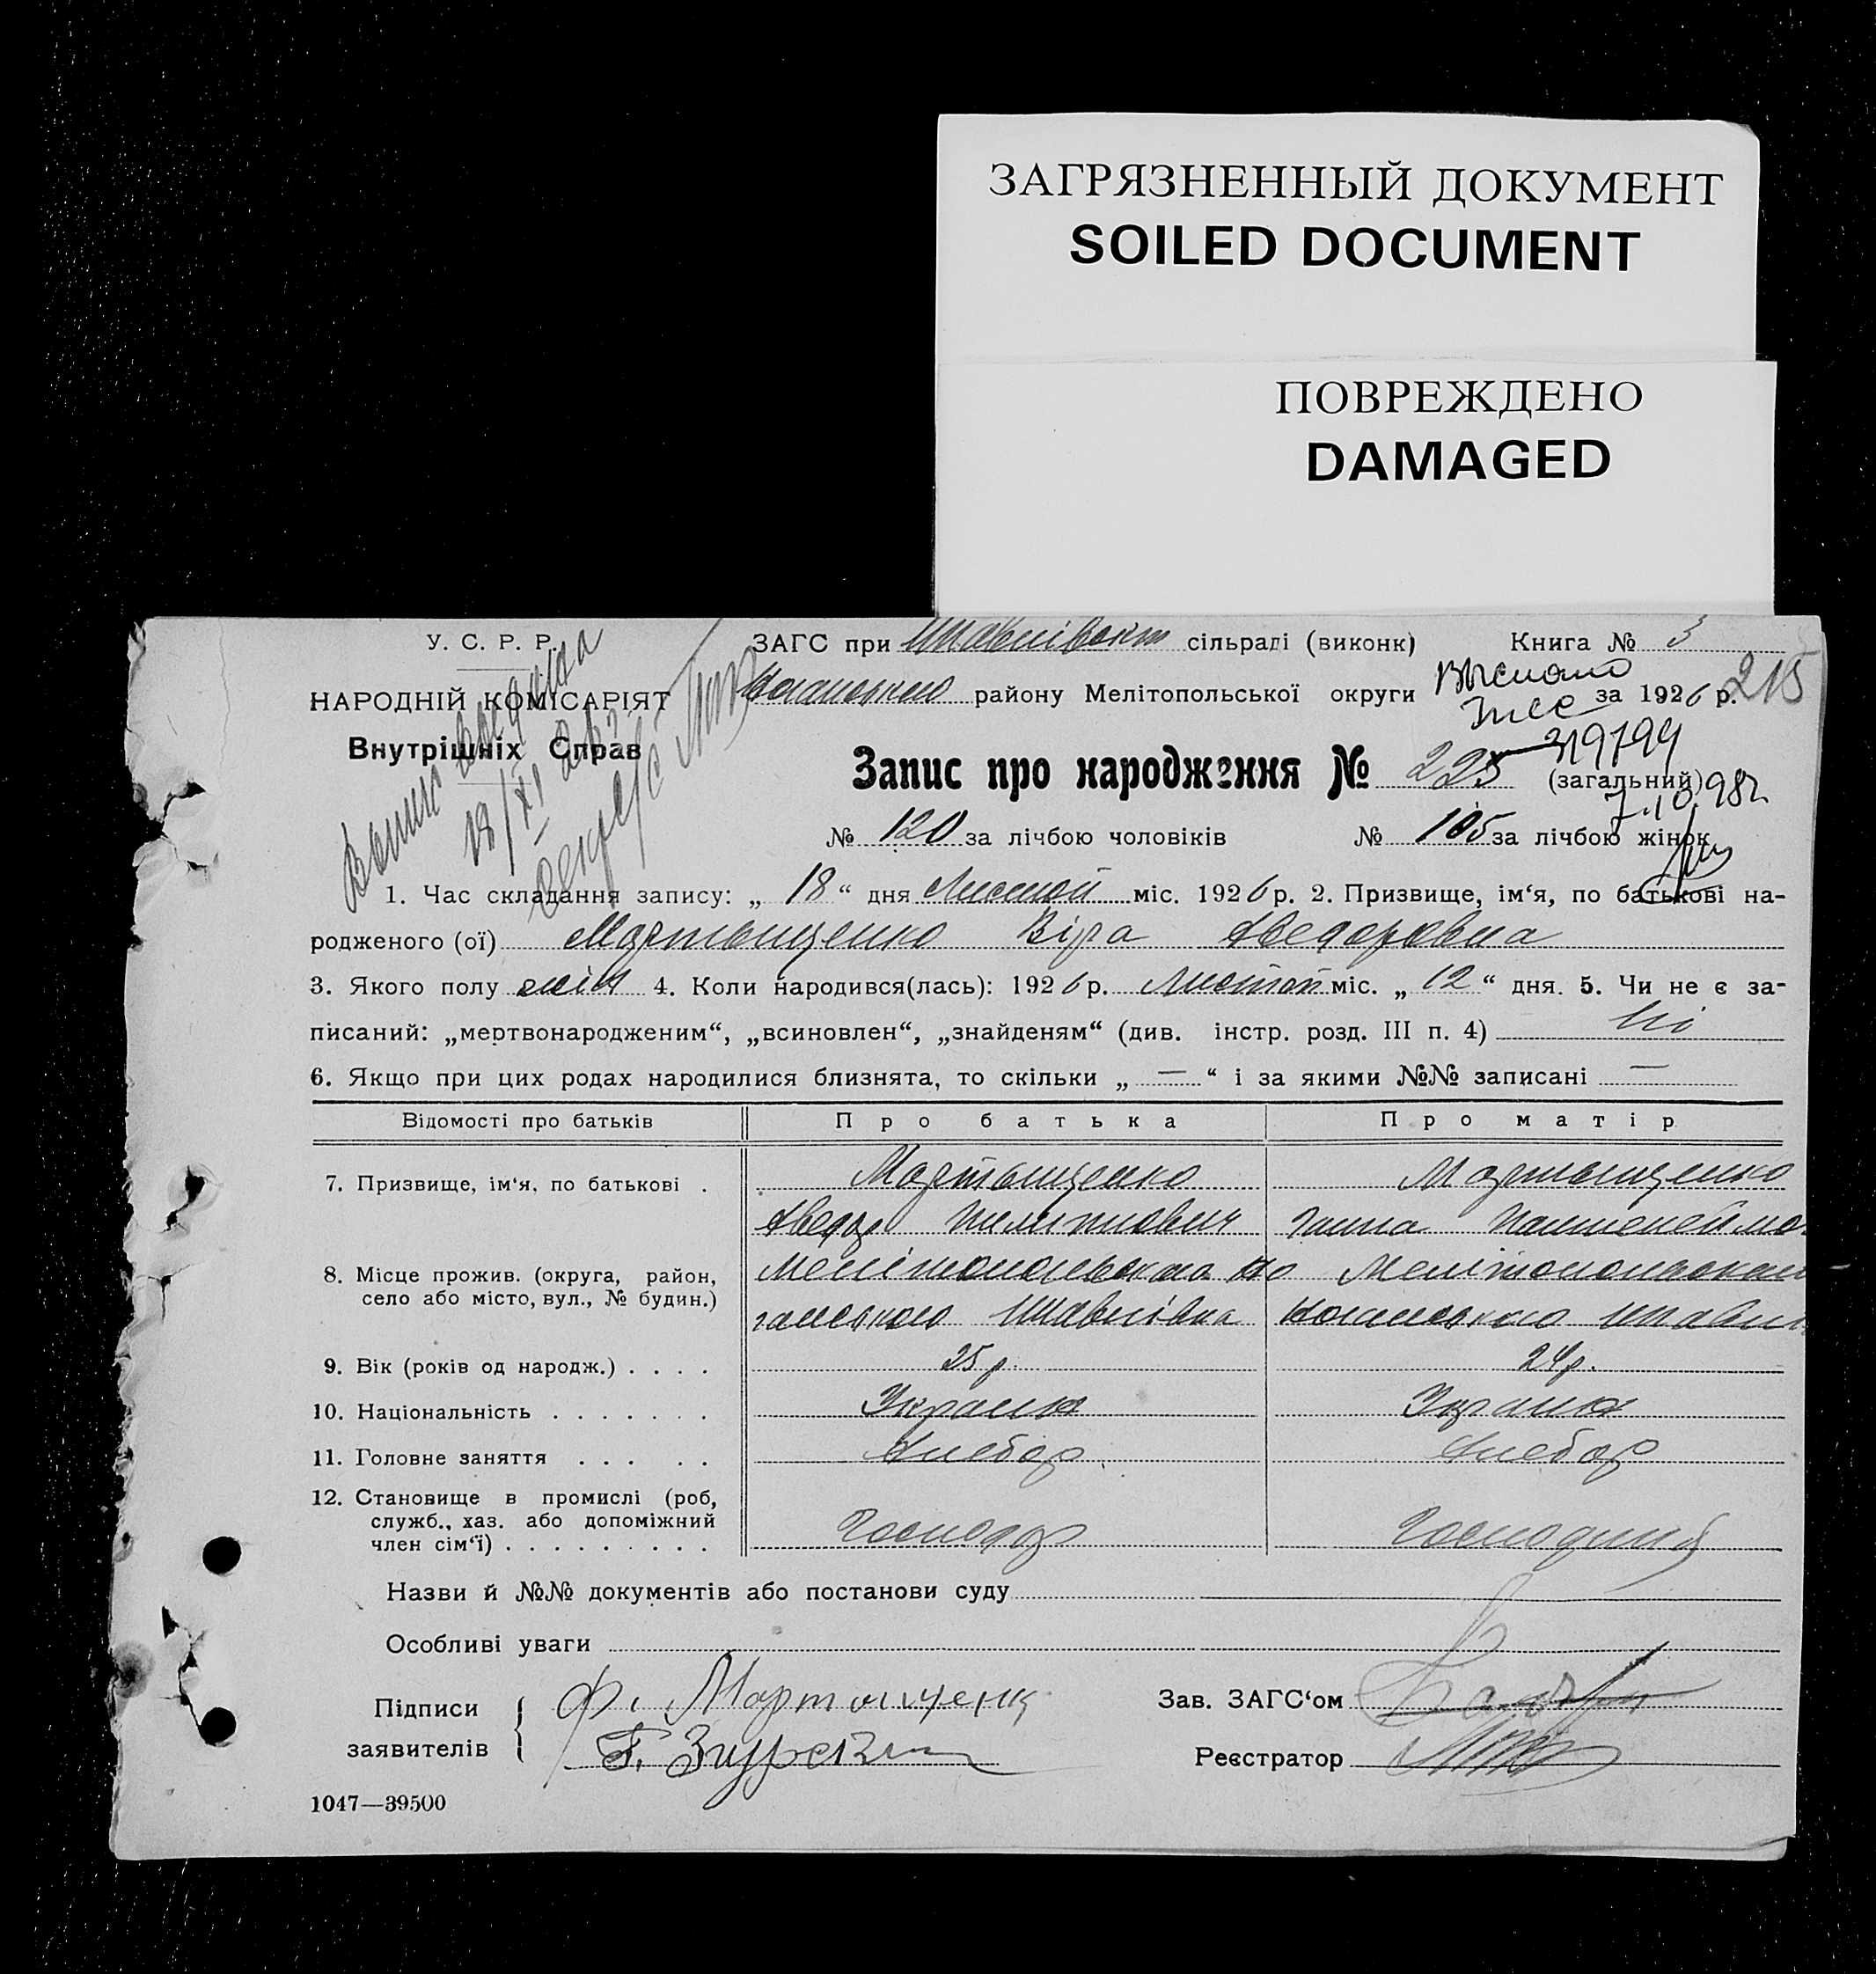 ЗАГРЯЗНЕННЫЙ ДОКУМЕНТ
SOILED DOCUMENT
ПОВРЕЖДЕНО
DAMAGED
У. С. Р. Р.
НАРОДНІЙ КОМІСАРІЯТ
Внутрішніх Справ
ЗАГС при сільраді (виконк) Книга № 3
району Мелітопольської округи за 1926 р. 215
Запис про народження № 225 (загальний)
319794
7.10.98г.
№ 120 за лічбою чоловіків № 105 за лічбою жінок
18/XI
1. Час складання запису: „ 18 “ дня Листоп міс. 1926 р. 2. Призвище, ім‘я, по батькові на-
родженого (ої) Мартыщенко Віра Хведоровна
3. Якого полу жін 4. Коли народився(лась): 1926 р. Листоп міс. „ 12 “ дня. 5. Чи не є за-
писаний: „мертвонародженим“, „всиновлен“, „знайденям“ (див. інстр. розд. III п. 4) Ні
6. Якщо при цих родах народилися близнята, то скільки „ — “ і за якими №№ записані —
Відомості про батьків Про батька Про матір
7. Призвище, ім‘я, по батькові . Мартыщенко Мартыщенко
Хведор Пилипович Ганна
8. Місце прожив. (округа, район,
село або місто, вул., № будин.)
9. Вік (років од народж.) . . . . 25 р. 24 р.
10. Національність . . . . . . . Украин Украин
11. Головне заняття . . . . . Хлебор Хлебор
12. Становище в промислі (роб,
служб., хаз. або допоміжний
член сім‘ї) . . . . . . . . . Господар Господиня
Назви й №№ документів або постанови суду
Особливі уваги
Підписи
заявителів
Ф. Мартыщенк
Зав. ЗАГС‘ом
Реєстратор
1047—39500